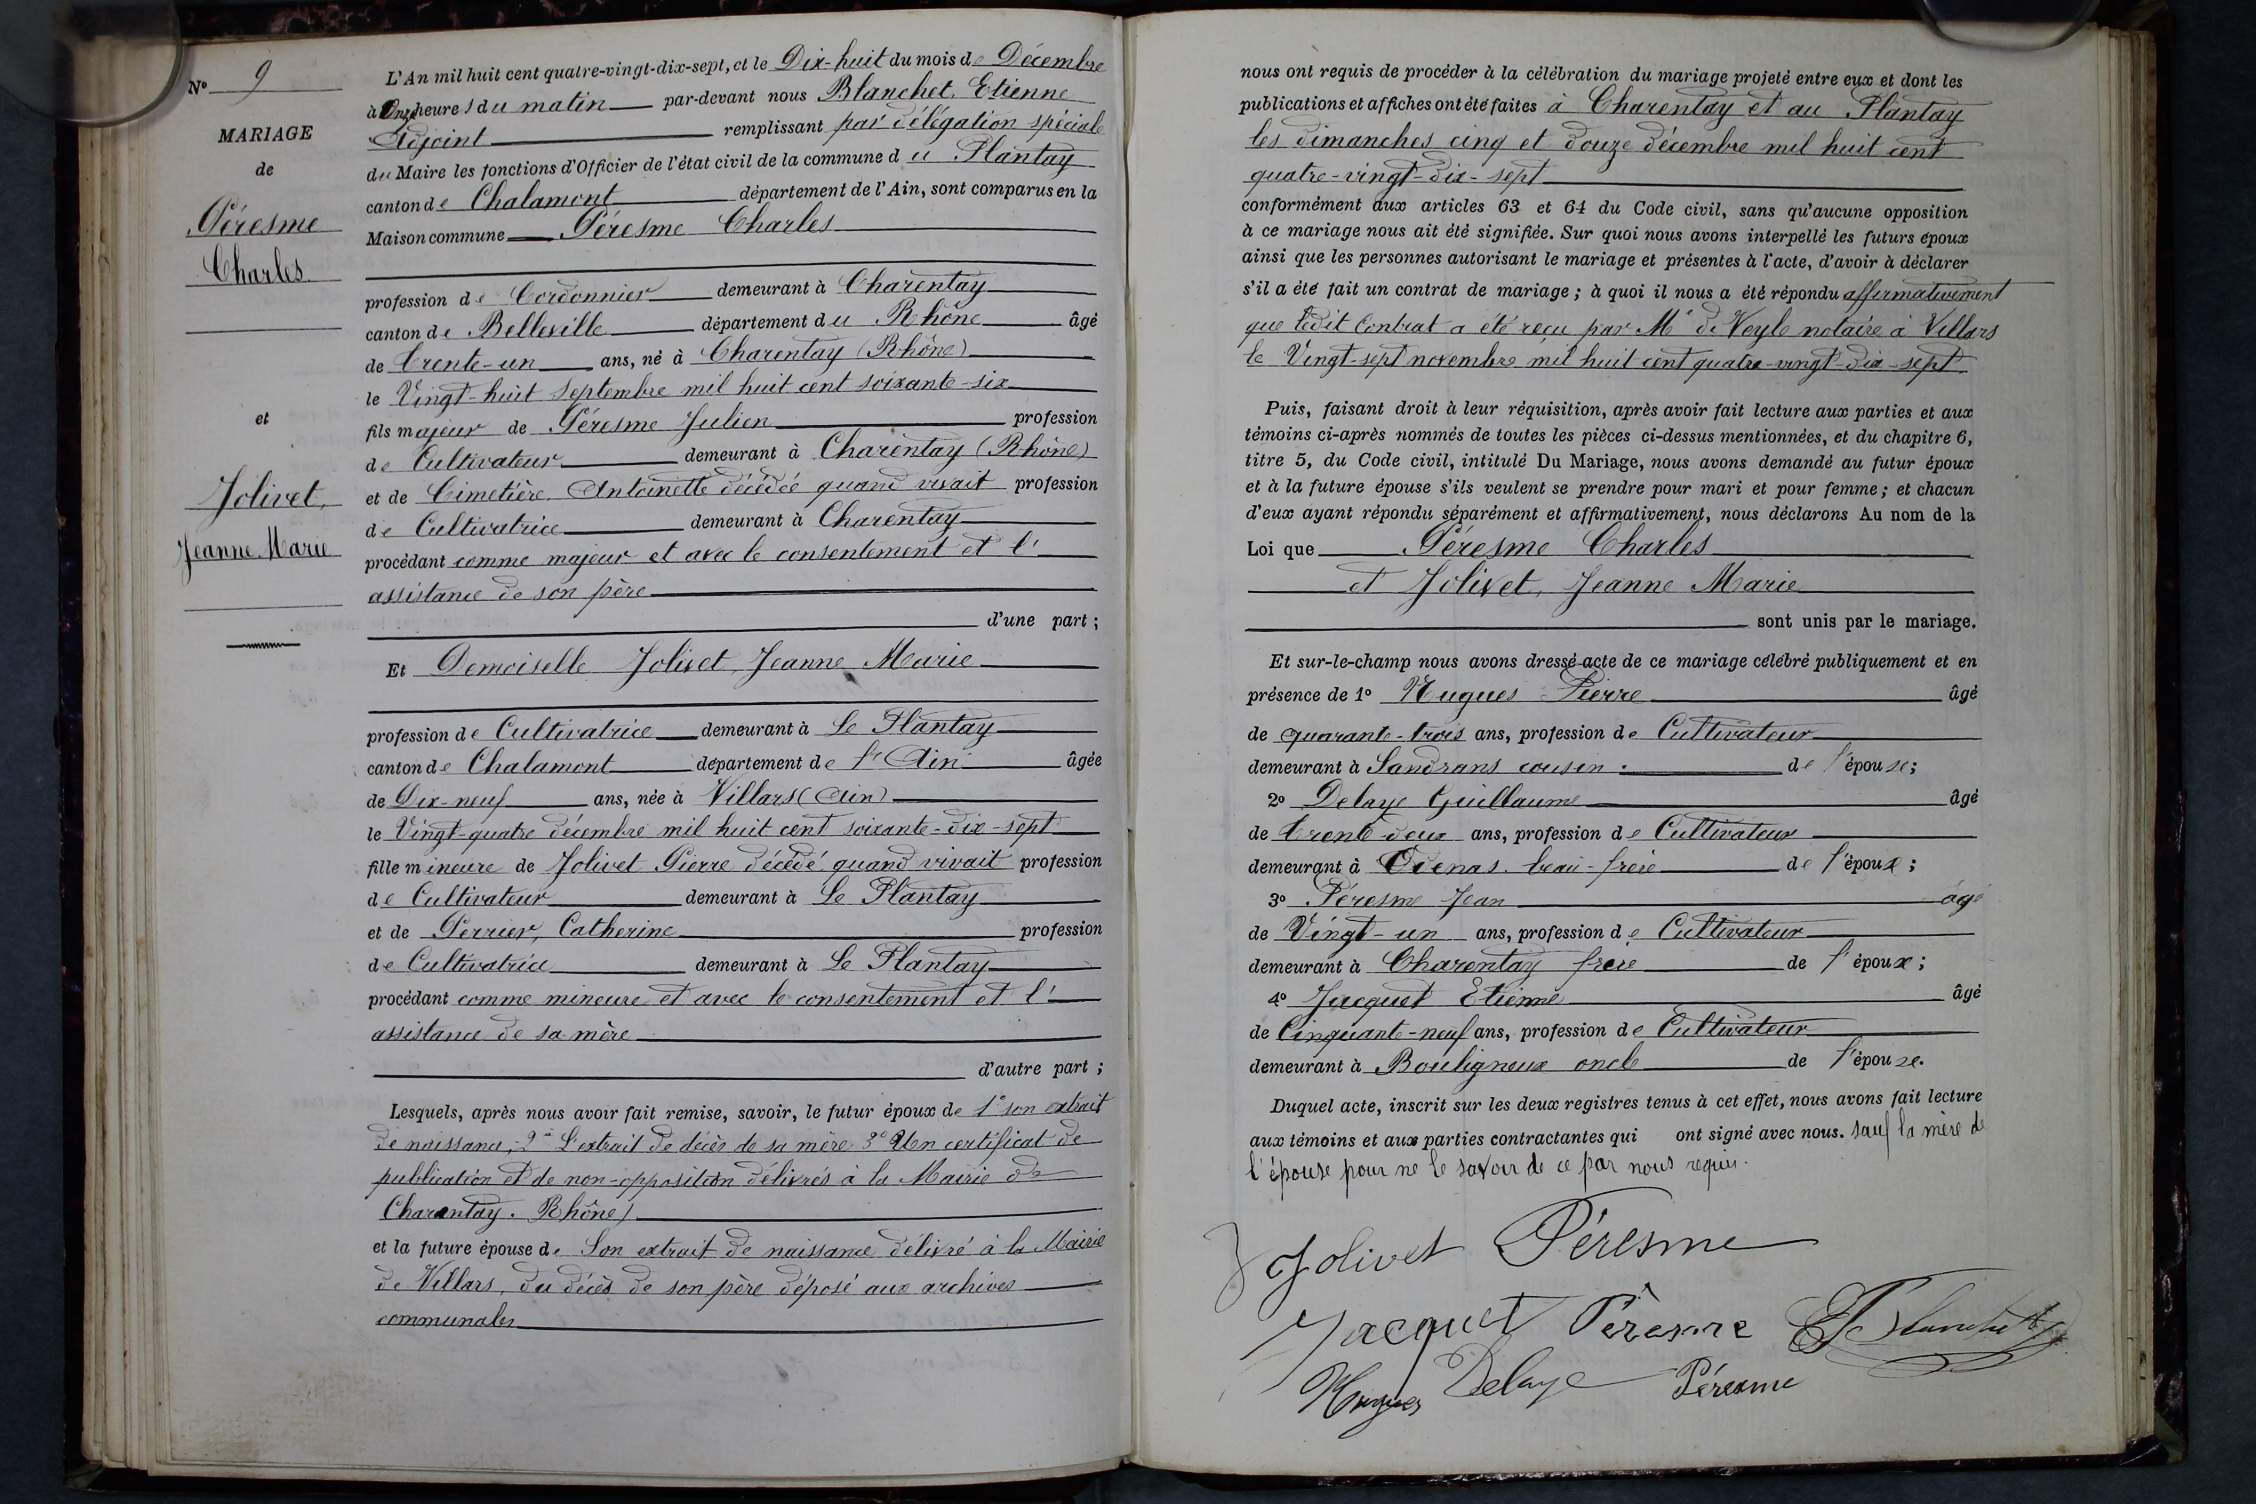 N° 9
MARIAGE
de
Péresme
Charles
et
Jolivet,
Jeanne Marie
L'An mil huit cent quatre-vingt-dix-sept, et le Dix-huit du mois de Décembre
à Onze heures du matin par-devant nous Blanchet, Etienne
Adjoint remplissant par délégation spéciale
du Maire les fonctions d'Officier de l'état civil de la commune du Plantay
canton de Chalamont département de l'Ain, sont comparus en la
Maison commune Péresme Charles
profession de Cordonnier demeurant à Charentay
canton de Belleville département du Rhône âgé
de trente-un ans, né à Charentay (Rhône)
le Vingt-huit Septembre mil huit cent soixante-six
fils majeur de Péresme Julien profession
de Cultivateur demeurant à Charentay (Rhône)
et de Cimetière. Antoinette décédée quand vivait profession
de Cultivatrice demeurant à Charentay
procédant comme majeur et avec le consentement et l'
assistance de son père
d'une part ;
Et Demoiselle Jolivet, Jeanne Marie
profession de Cultivatrice demeurant à Le Plantay
canton de Chalamont département de l'Ain âgée
de Dix-neuf ans, née à Villars (Ain)
le Vingt-quatre décembre mil huit cent soixante-dix-sept
fille mineure de Jolivet Pierre décédé quand vivait profession
de Cultivateur demeurant à Le Plantay
et de Perrier, Catherine profession
de Cultivatrice demeurant à Le Plantay
procédant comme mineure et avec le consentement et l'
assistance de sa mère
d'autre part ;
Lesquels, après nous avoir fait remise, savoir, le futur époux de 1° son extrait
de naissance, 2° L'extrait de décès de sa mère 3° Un certificat de
publication et de non-opposition délivrés à la Mairie de
Charentay. Rhône)
et la future épouse de Son extrait de naissance délivré à la Mairie
de Villars, du décès de son père déposé aux archives
communales
nous ont requis de procéder à la célébration du mariage projeté entre eux et dont les
publications et affiches ont été faites à Charentay et au Plantay
les dimanches cinq et douze décembre mil huit cent
quatre-vingt-dix-sept
conformément aux articles 63 et 64 du Code civil, sans qu'aucune opposition
à ce mariage nous ait été signifiée. Sur quoi nous avons interpellé les futurs époux
ainsi que les personnes autorisant le mariage et présentes à l'acte, d'avoir à déclarer
s'il a été fait un contrat de mariage ; à quoi il nous a été répondu affirmativement
que ledit Contrat a été reçu par Me de Veyle notaire à Villars
le Vingt-sept novembre mil huit cent quatre-vingt-dix-sept.
Puis, faisant droit à leur réquisition, après avoir fait lecture aux parties et aux
témoins ci-après nommés de toutes les pièces ci-dessus mentionnées, et du chapitre 6,
titre 5, du Code civil, intitulé Du Mariage, nous avons demandé au futur époux
et à la future épouse s'ils veulent se prendre pour mari et pour femme ; et chacun
d'eux ayant répondu séparément et affirmativement, nous déclarons Au nom de la
Loi que Péresme Charles
et Jolivet, Jeanne Marie
sont unis par le mariage.
Et sur-le-champ nous avons dressé acte de ce mariage célébré publiquement et en
présence de 1° Hugues Pierre âgé
de quarante-trois ans, profession de Cultivateur
demeurant à Sandrans cousin de l'épouse ;
2° Delaye Guillaume âgé
de trente-deux ans, profession de Cultivateur
demeurant à Odenas. beau-frère de l'époux ;
3° Péresme Jean âgé
de Vingt-un ans, profession de Cultivateur
demeurant à Charentay frère de l'époux ;
4° Jacquet Etienne âgé
de Cinquante-neuf ans, profession de Cultivateur
demeurant à Bouligneux oncle de l'épouse.
Duquel acte, inscrit sur les deux registres tenus à cet effet, nous avons fait lecture
aux témoins et aux parties contractantes qui ont signé avec nous. sauf la mère de
l'épouse pour ne le savoir de ce par nous requis.
Jolivet Péresme
Jacquet Péresme E Blanchet
Hugues Delaye Péresme